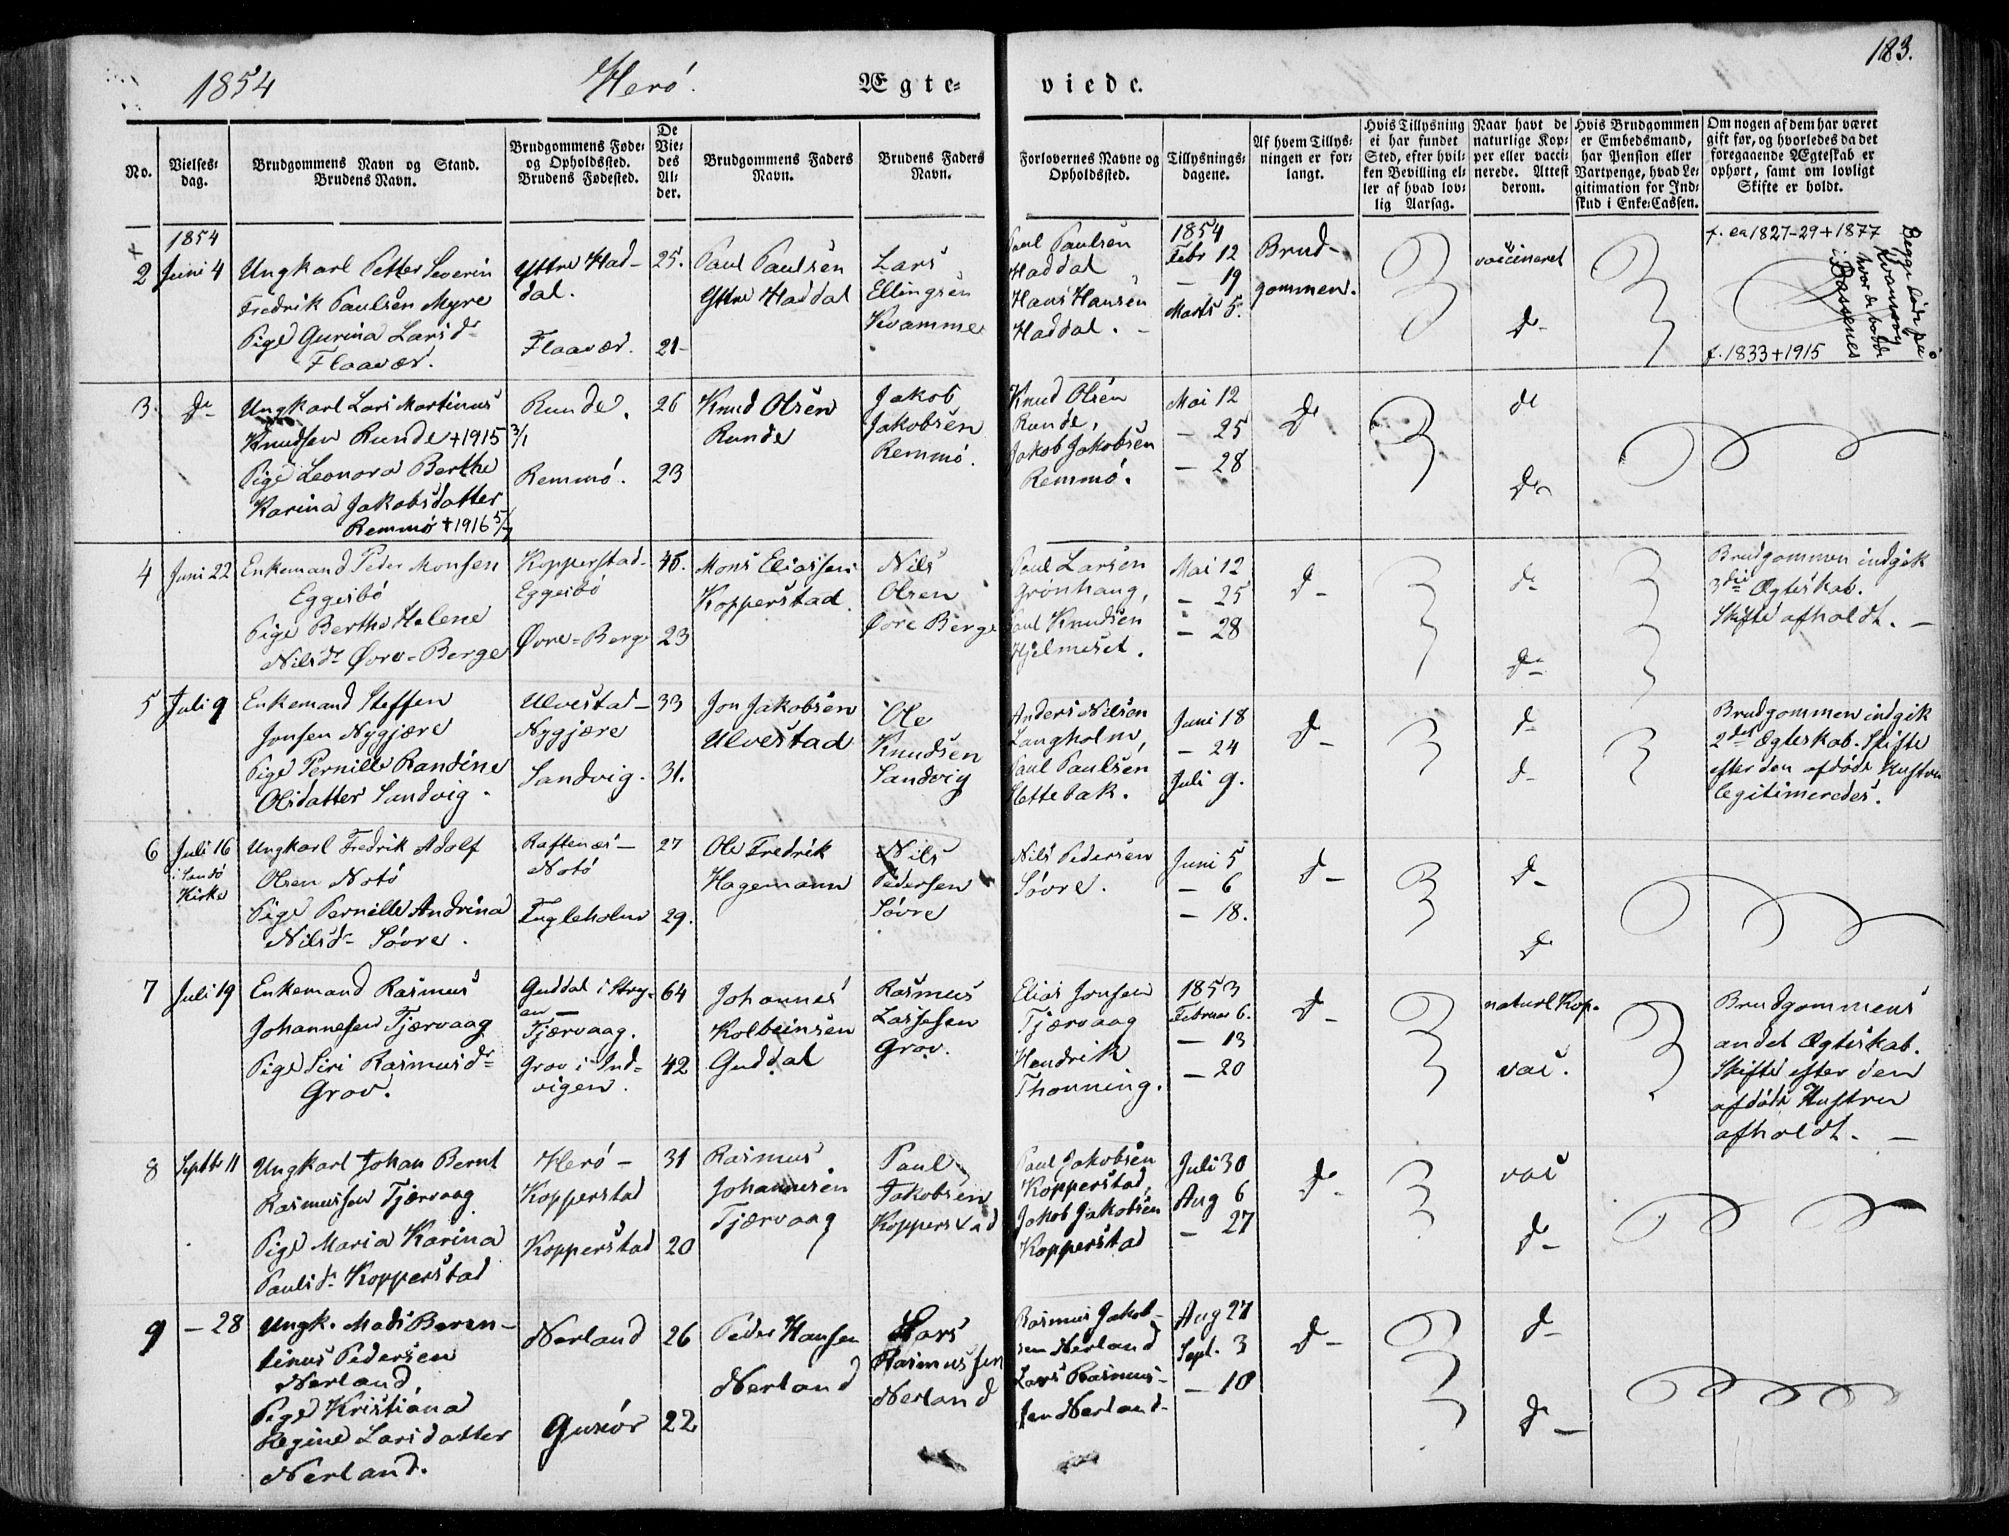 183.
1854 Herö. Ægte= viede.
No.
Vielses=
dag.
Brudgommens Navn og Stand.
Brudens Navn.
Brudgommens Føde=
og Opholdssted.
Brudens Fødested.
De
Vie=
des
Al=
der.
Brudgommens Faders
Navn.
Brudens Faders
Navn.
Forlovernes Navne og
Opholdssted.
Tillysnings=
dagene.
Af hvem Tillys=
ningen er for=
langt.
Hvis Tillysning
ei har fundet
Sted, efter hvil=
ken Bevilling el=
ler af hvad lov=
lig Aarsag.
Naar havt de
naturlige Kop=
per eller vacci=
nerede. Attest
derom.
Hvis Brudgommen
er Embedsmand,
har Pension eller
Vartpenge, hvad Le=
gitimation for Ind=
skud i Enke=Cassen.
Om nogen af dem har været
gift før, og hvorledes da det
foregaaende Ægteskab er
ophørt, samt om lovligt
Skifte er holdt.
2
1854
Juni 4
Ungkarl Petter Severin
Fredrik Paulsen Myre
Pige Gurina Larsdr
Flaavær.
Yttre Had-
dal.
Flaavær.
25.
21-
Paul Paulsen
Yttre Haddal
Lars
Ellingsen
Kvamme
Paul Paulsen
Haddal
Hans Hansen
Haddal. -
1854
Febr 12
- 19
Marts 5.
Brud-
gommen.
vaccineret
d-
f. ca 1827-29 + 1877
f. 1833 + 1915
Begge døde på
Kvamsøy
hvor de bodde
i Bassenes
3.
d-
Ungkarl Lars Martinus
Knudsen Runde +1915 3/1
Pige Leonora Berthe
Karina Jakobsdatter
Remmö +1916 5/7
Runde.
Remmö.
26
23
Knud Olsen
Runde
Jakob
Jakobsen
Remmö.
Knud Olsen
Runde,
Jakob Jakobsen
Remmö.
Mai 12
- 25
- 28
d-
d-
d-
4
Juni 22
Enkemand Peder Monsen
Eggesbö
Pige Berthe Helene
Nilsdr Øvre-Berge
Kopperstad-
Eggesbö
Øvre-Berge
46.
23
Mons Eliassen
Kopperstad.
Nils
Olsen
Øvre Berge
Paul Larsen
Grönhaug,
Paul Knudsen
Hjelmeset.
Mai 12
- 25
- 28
d-
d-
d-
Brudgommen indgik
3die Ægteskab.
Skifte afholdt. -
5
Juli 9
Enkemand Steffen
Jonsen Nygjære
Pige Pernille Randine
Olsdatter Sandvig.
Ulvestad-
Nygjære
Sandvig.
33
31.
Jon Jakobsen
Ulvestad
Ole
Knudsen
Sandvig
Anders Nilsen
Langholm,
Paul Paulsen
Slettebak.
Juni 18
- 24
Juli 9.
d-
d-
d-
Brudgommen indgik
2det Ægteskab. Skifte
efter den afdøde Hustru
legitimeredes.
6
Juli 16
i Sandö
Kirke
Ungkarl Fredrik Adolf
Olsen Notö
Pige Pernille Andrina
Nilsdr Sövre.
Raftenæs-
Notö
Fugleholm
27
29.
Ole Fredrik
Hagemann
Nils
Pedersen
Sövre
Nils Pedersen
Sövre.
Juni 5
- 6
- 18.
d-
d-
d-
7
Juli 19
Enkemand Rasmus
Johannesen Tjærvaag
Pige Siri Rasmusdr
Grov.
Guddal i Stry-
en -
Tjærvaag.
Grov i Ind-
vigen.
64
42
Johannes
Kolbeinsen
Guddal
Rasmus
Lassesen
Grov.
Elias Jonsen
Tjærvaag
Hendrik
Thonning.
1853
Februar 6.
- 13
- 20
d-
naturl. Kop.
vac.
Brudgommens
andet Ægteskab.
Skifte efter den
afdøde Hustru
afholdt. -
8
Septbr 11
Ungkarl Johan Bernt
Rasmussen Tjærvaag
Pige Maria Karina
Paulsdr Kopperstad
Herö-
Kopperstad
Kopperstad
31
20
Rasmus
Johannesen
Tjærvaag
Paul
Jakobsen
Kopperstad
Paul Jakobsen
Kopperstad,
Jakob Jakobsen
Kopperstad
Juli 30
Aug 6
- 27
d-
vac
d-
9
- 28
Ungk. Mads Beren-
tinus Pedersen
Nerland
Pige Kristiana
Regine Larsdatter
Nerland.
Nerland
Gursör
26
22
Peder Hansen
Nerland
Lars
Rasmussen
Nerland
Rasmus Jakob-
sen Nerland
Lars Rasmus-
sen Nerland-
Aug 27
Sept. 3
- 10
d-
d-
d-